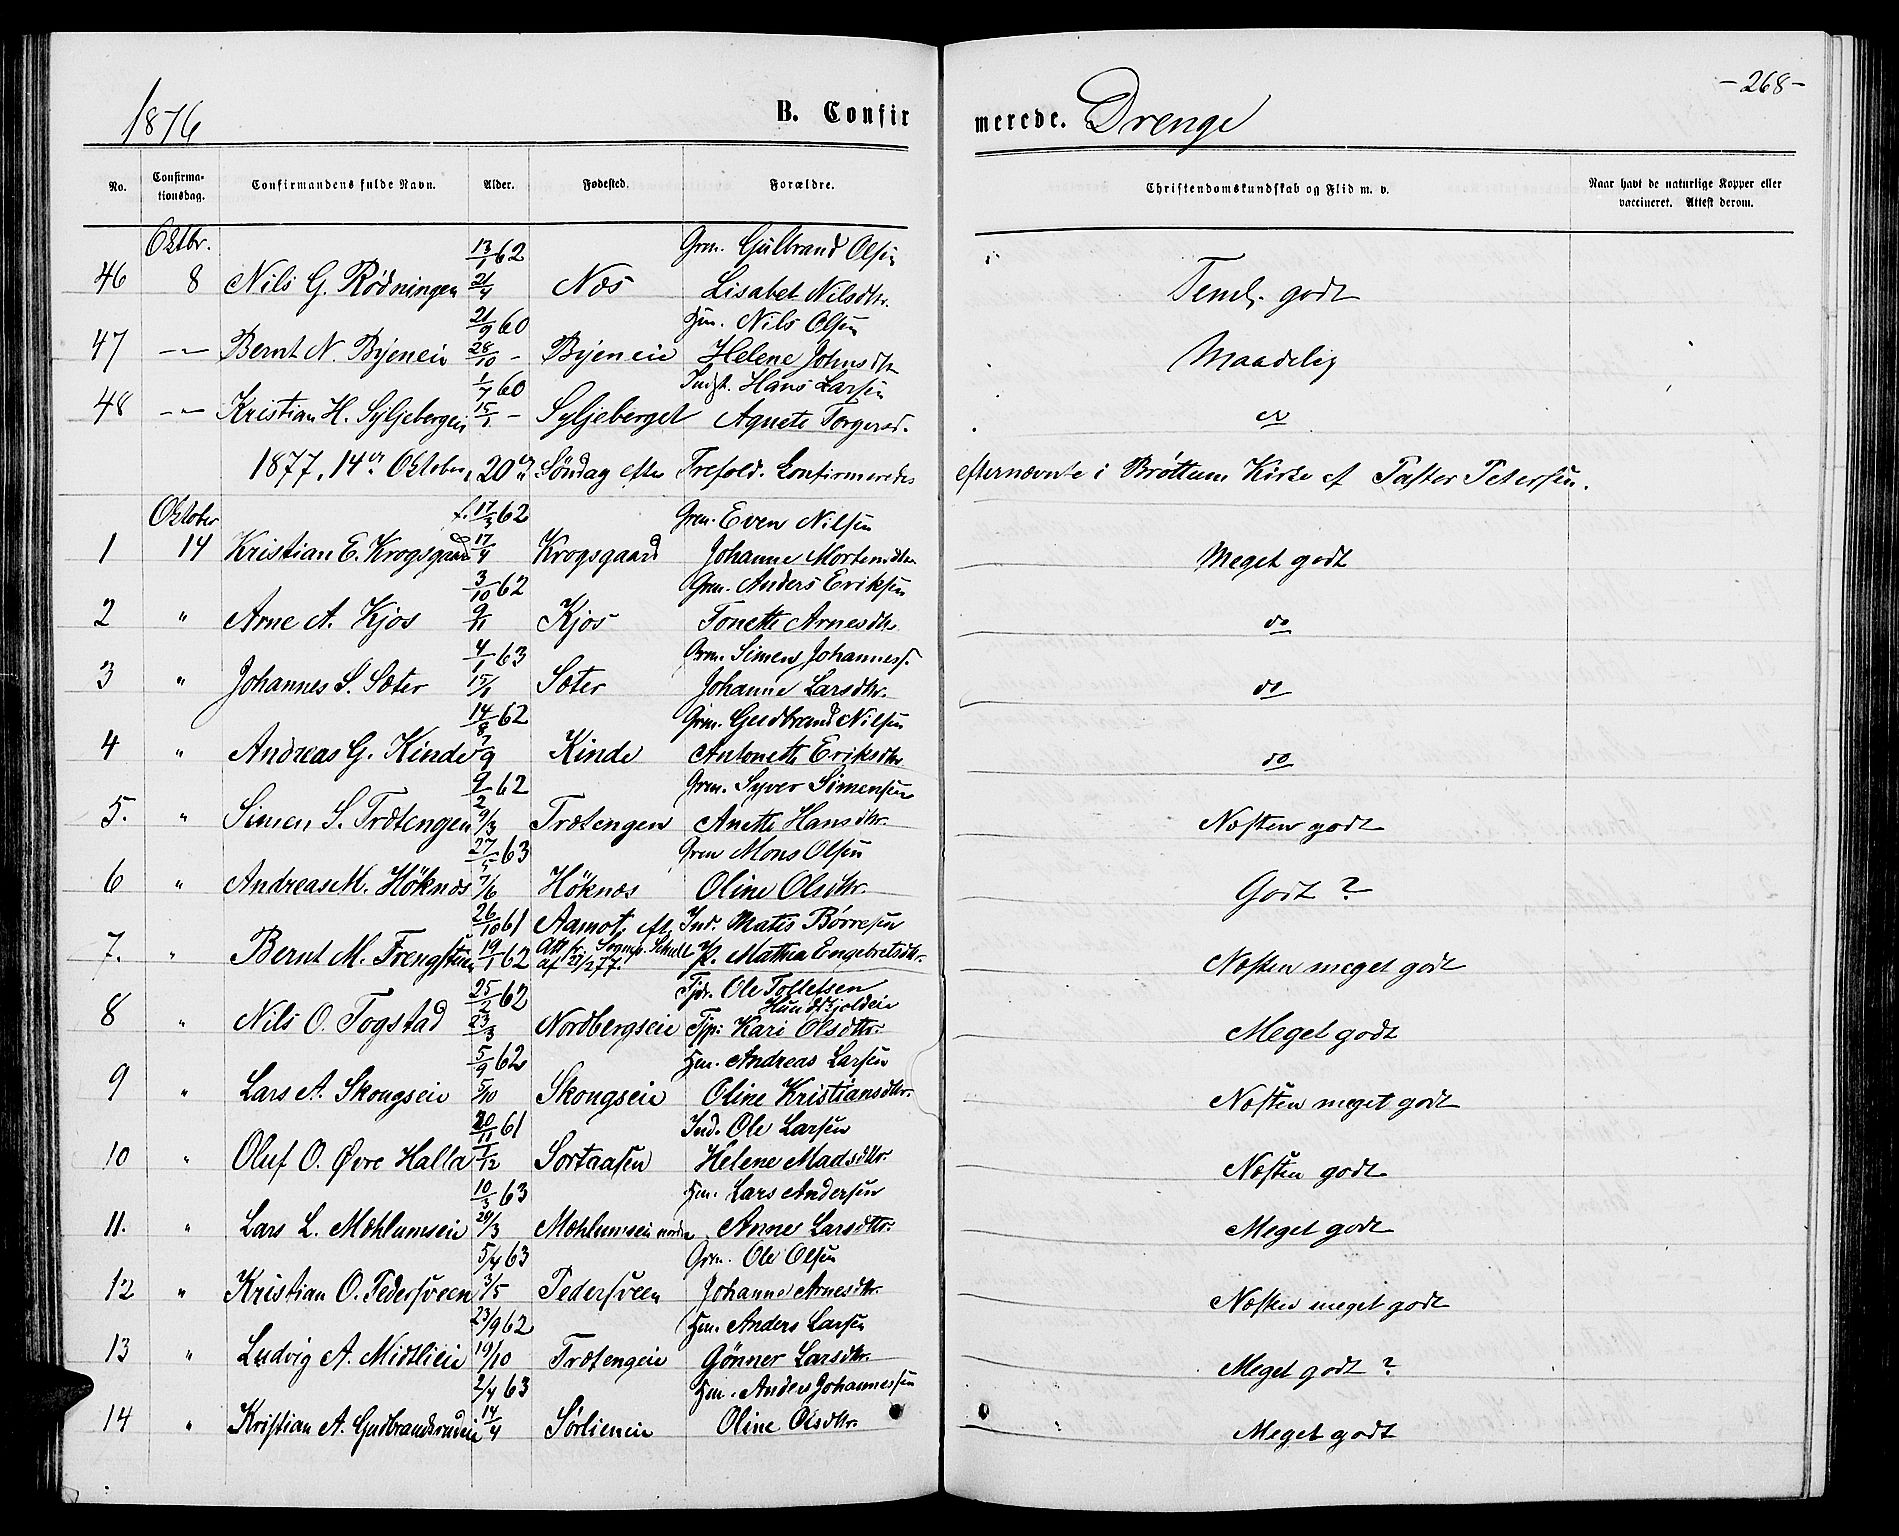 -268-
1876 B. Confirmerede. Drenge
No. Confirmationsdag. Confirmandens fulde Navn. Alder. Fødested. Forældre. Christendomskundskab og Flid m. v. Naar havt de naturlige Kopper eller vaccineret. Attest derom.
Oktbr. 13/1 62 Grm. Gulbrand Olsen
46 8 Nils G. Rødningen 21/4 Næs Lisabet Nilsdtr. Teml. godt
21/9 60 Hm. Nils Olsen
47 -"- Bernt N. Byeneie 28/10 - Byeneie Helene Johnsdtr Maadelig
1/7 60 Inds. Hans Larsen
48 -"- Kristian H. Syljebergeie 15/1 - Syljeberget Agnete Torgersd. do
1877, 14de Oktober, 20de Søndag efter Trefold. Confirmeredes efternævnte i Brøttum Kirke af Pastor Petersen.
Oktober f. 17/3 62 Grm. Even Nilsen
1 14 Kristian E. Krogsgaard 17/4 Krogsgaard Johanne Mortensdtr Meget godt
3/10 62 Grm. Anders Eriksen
2 " Arne A. Kjos 9/11 Kjos Tonette Arnesdtr. do
4/1 63 Grm. Simen Johanness.
3 " Johannes S. Sæter 15/1 Sæter Johanne Larsdtr. do
14/8 62 Grm. Gudbrand Nilsen
4 " Andreas G. Kinde 7/9 Kinde Antonette Eriksdtr do
9/2 62 Grm. Syver Simensen
5. " Simen S. Trætengen 9/3 Trætengen Anette Hansdtr. Næsten godt
27/5 63 Grm Mons Olsen
6 " Andreas M. Høknæs 7/6 Høknæs Oline Olsdtr. Godt ?
26/10 61 Aamot, Ind. Mates Børresen
7. " Bernt M. Frengstuen 19/1 62 Att. fr. Sognep. Schult af 21/2 77. P. Mathea Engebretsdtr. Næsten meget godt
25/2 62 Tjdr. Ole Tolletsen Hundskjoldeie
8 " Nils O. Togstad 23/3 Nordbergseie Tjp. Kari Olsdtr. Meget godt
5/9 62 Hm. Andreas Larsen
9 " Lars A. Skougseie 5/10 Skougseie Oline Kristiansdtr. Næsten meget godt
20/11 61 Ind. Ole Larsen
10 " Oluf O. Øvre Halla 1/12 Sortaasen Helene Madsdtr. Næsten godt
10/3 63 Hm. Lars Andersen
11. " Lars L. Mæhlumseie 29/3 Mæhlumseie nordre Anne Larsdtr. Meget godt
5/4 63 Grm. Ole Olsen
12 " Kristian O. Pedersveen 3/5 Pedersveen Johanne Arnesdtr. Næsten meget godt
23/9 62 Hm. Anders Larsen
13 " Ludvig A. Midtlieie 19/10 Trætengeie Gønner Larsdtr. Meget godt ?
2/4 63 Hm. Anders Johannessen
14 " Kristian A. Gudbrandsrudeie 14/4 Sørlieneie Oline Olsdtr. Meget godt